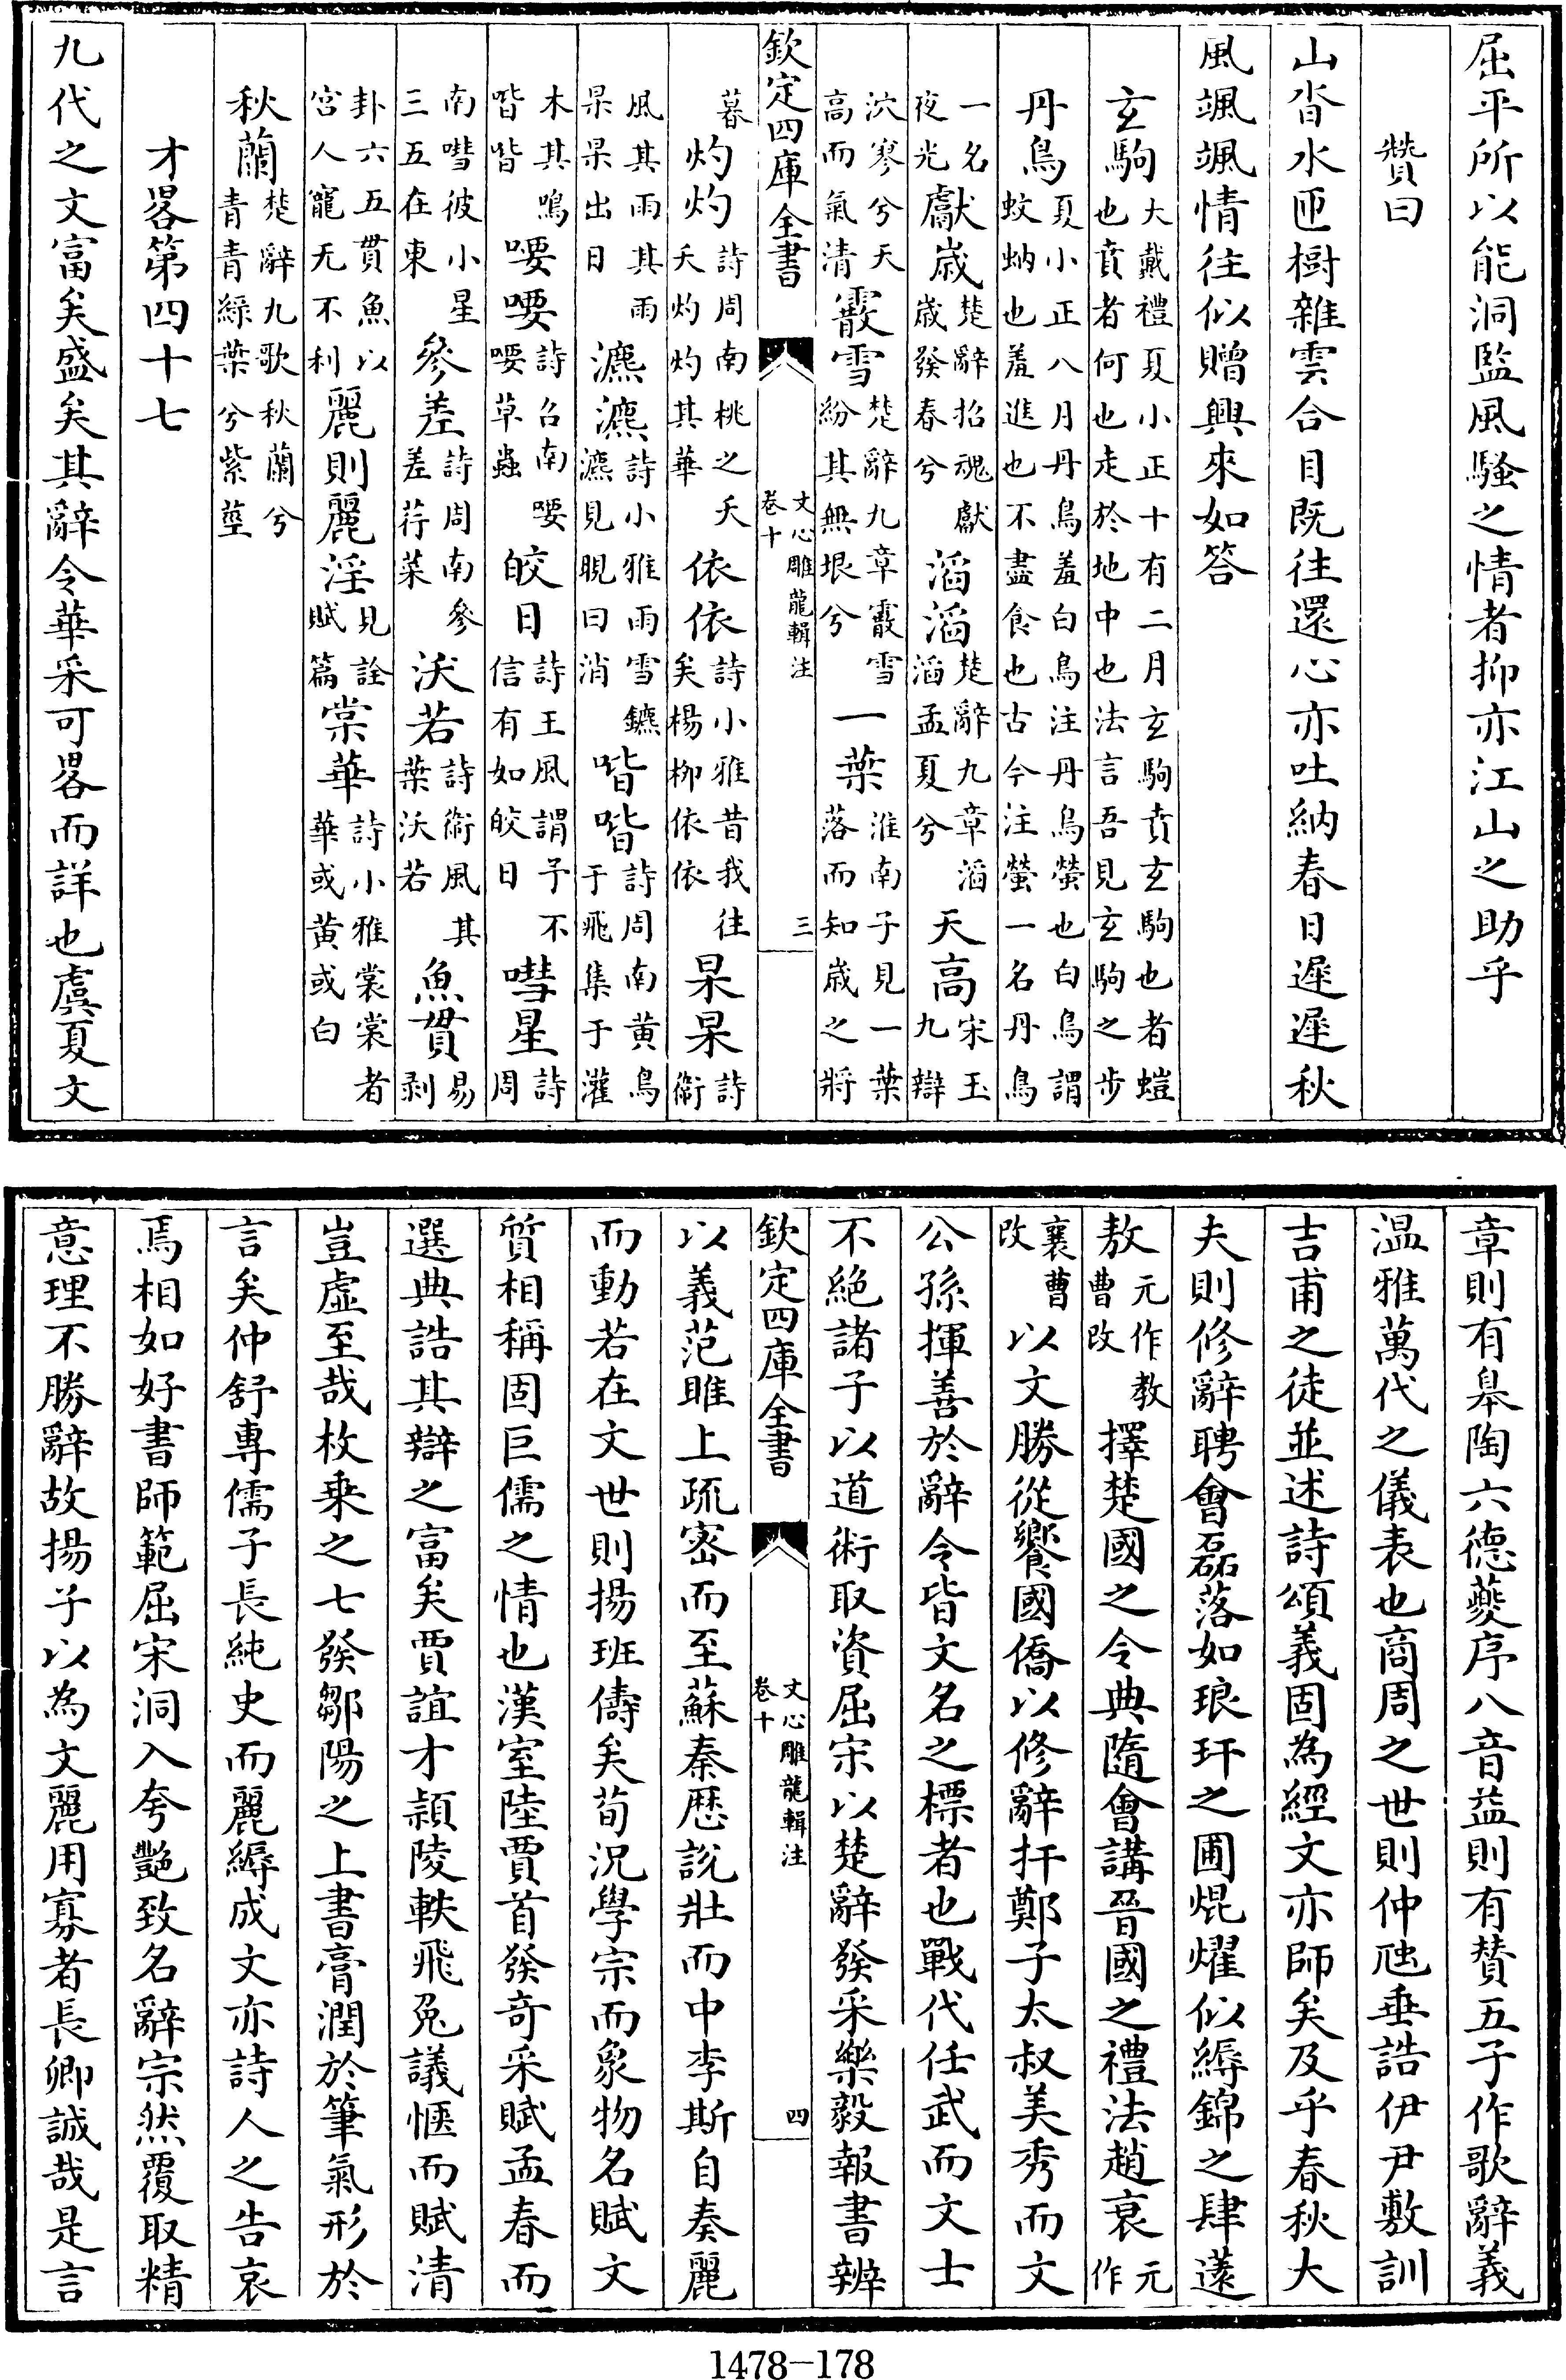 屈平所以能洞監風騷之情者抑亦江山之助乎
贊曰
山沓水匝樹雜雲合目既往還心亦吐納春日遲遲秋
風颯颯情往似贈興來如答
玄駒大戴禮夏小正十有二月玄駒賁玄駒也者螘也賁者何也走於地中也法言吾見玄駒之步
丹鳥夏小正八月丹鳥羞白鳥注丹鳥螢也白鳥謂蚊蚋也羞進也不盡食也古今注螢一名丹鳥
一名夜光獻歲楚辭招魂獻歲發春兮滔滔楚辭九章滔滔孟夏兮天高宋玉九辯
泬寥兮天高而氣清霰雪楚辭九章霰雪紛其無垠兮一葉淮南子見一葉落而知歲之將
欽定四庫全書 文心雕龍輯注 卷十 三
暮灼灼詩周南桃之夭夭灼灼其華依依詩小雅昔我往矣楊柳依依杲杲詩衛
風其雨其雨杲杲出日瀌瀌詩小雅雨雪瀌瀌見晛曰消喈喈詩周南黃鳥于飛集于灌
木其鳴喈喈喓喓詩召南喓喓草蟲皎日詩王風謂予不信有如皎日嘒星詩周
南嘒彼小星三五在東參差詩周南參差荇菜沃若詩衛風其葉沃若魚貫易剥
卦六五貫魚以宮人寵无不利麗則麗淫見詮賦篇棠華詩小雅裳裳者華或黃或白
秋蘭楚辭九歌秋蘭兮青青綠葉兮紫莖
才畧第四十七
九代之文富矣盛矣其辭令華采可畧而詳也虞夏文
章則有皋陶六德夔序八音益則有贊五子作歌辭義
溫雅萬代之儀表也商周之世則仲虺垂誥伊尹敷訓
吉甫之徒並述詩頌義固為經文亦師矣及乎春秋大
夫則修辭聘會磊落如琅玕之圃焜燿似縟錦之肆薳
敖元作教曹改擇楚國之令典隨會講晉國之禮法趙衰元作
襄曹改以文勝從饗國僑以修辭扞鄭子太叔美秀而文
公孫揮善於辭令皆文名之標者也戰代任武而文士
不絕諸子以道術取資屈宋以楚辭發采樂毅報書辨
欽定四庫全書 文心雕龍輯注 卷十 四
以義范雎上疏密而至蘇秦歷說壯而中李斯自奏麗
而動若在文世則揚班儔矣荀況學宗而象物名賦文
質相稱固巨儒之情也漢室陸賈首發奇采賦孟春而
選典誥其辯之富矣賈誼才穎陵軼飛兔議愜而賦清
豈虛至哉枚乘之七發鄒陽之上書膏潤於筆氣形於
言矣仲舒專儒子長純史而麗縟成文亦詩人之告哀
焉相如好書師範屈宋洞入夸艷致名辭宗然覆取精
意理不勝辭故揚子以為文麗用寡者長卿誠哉是言
1478-178